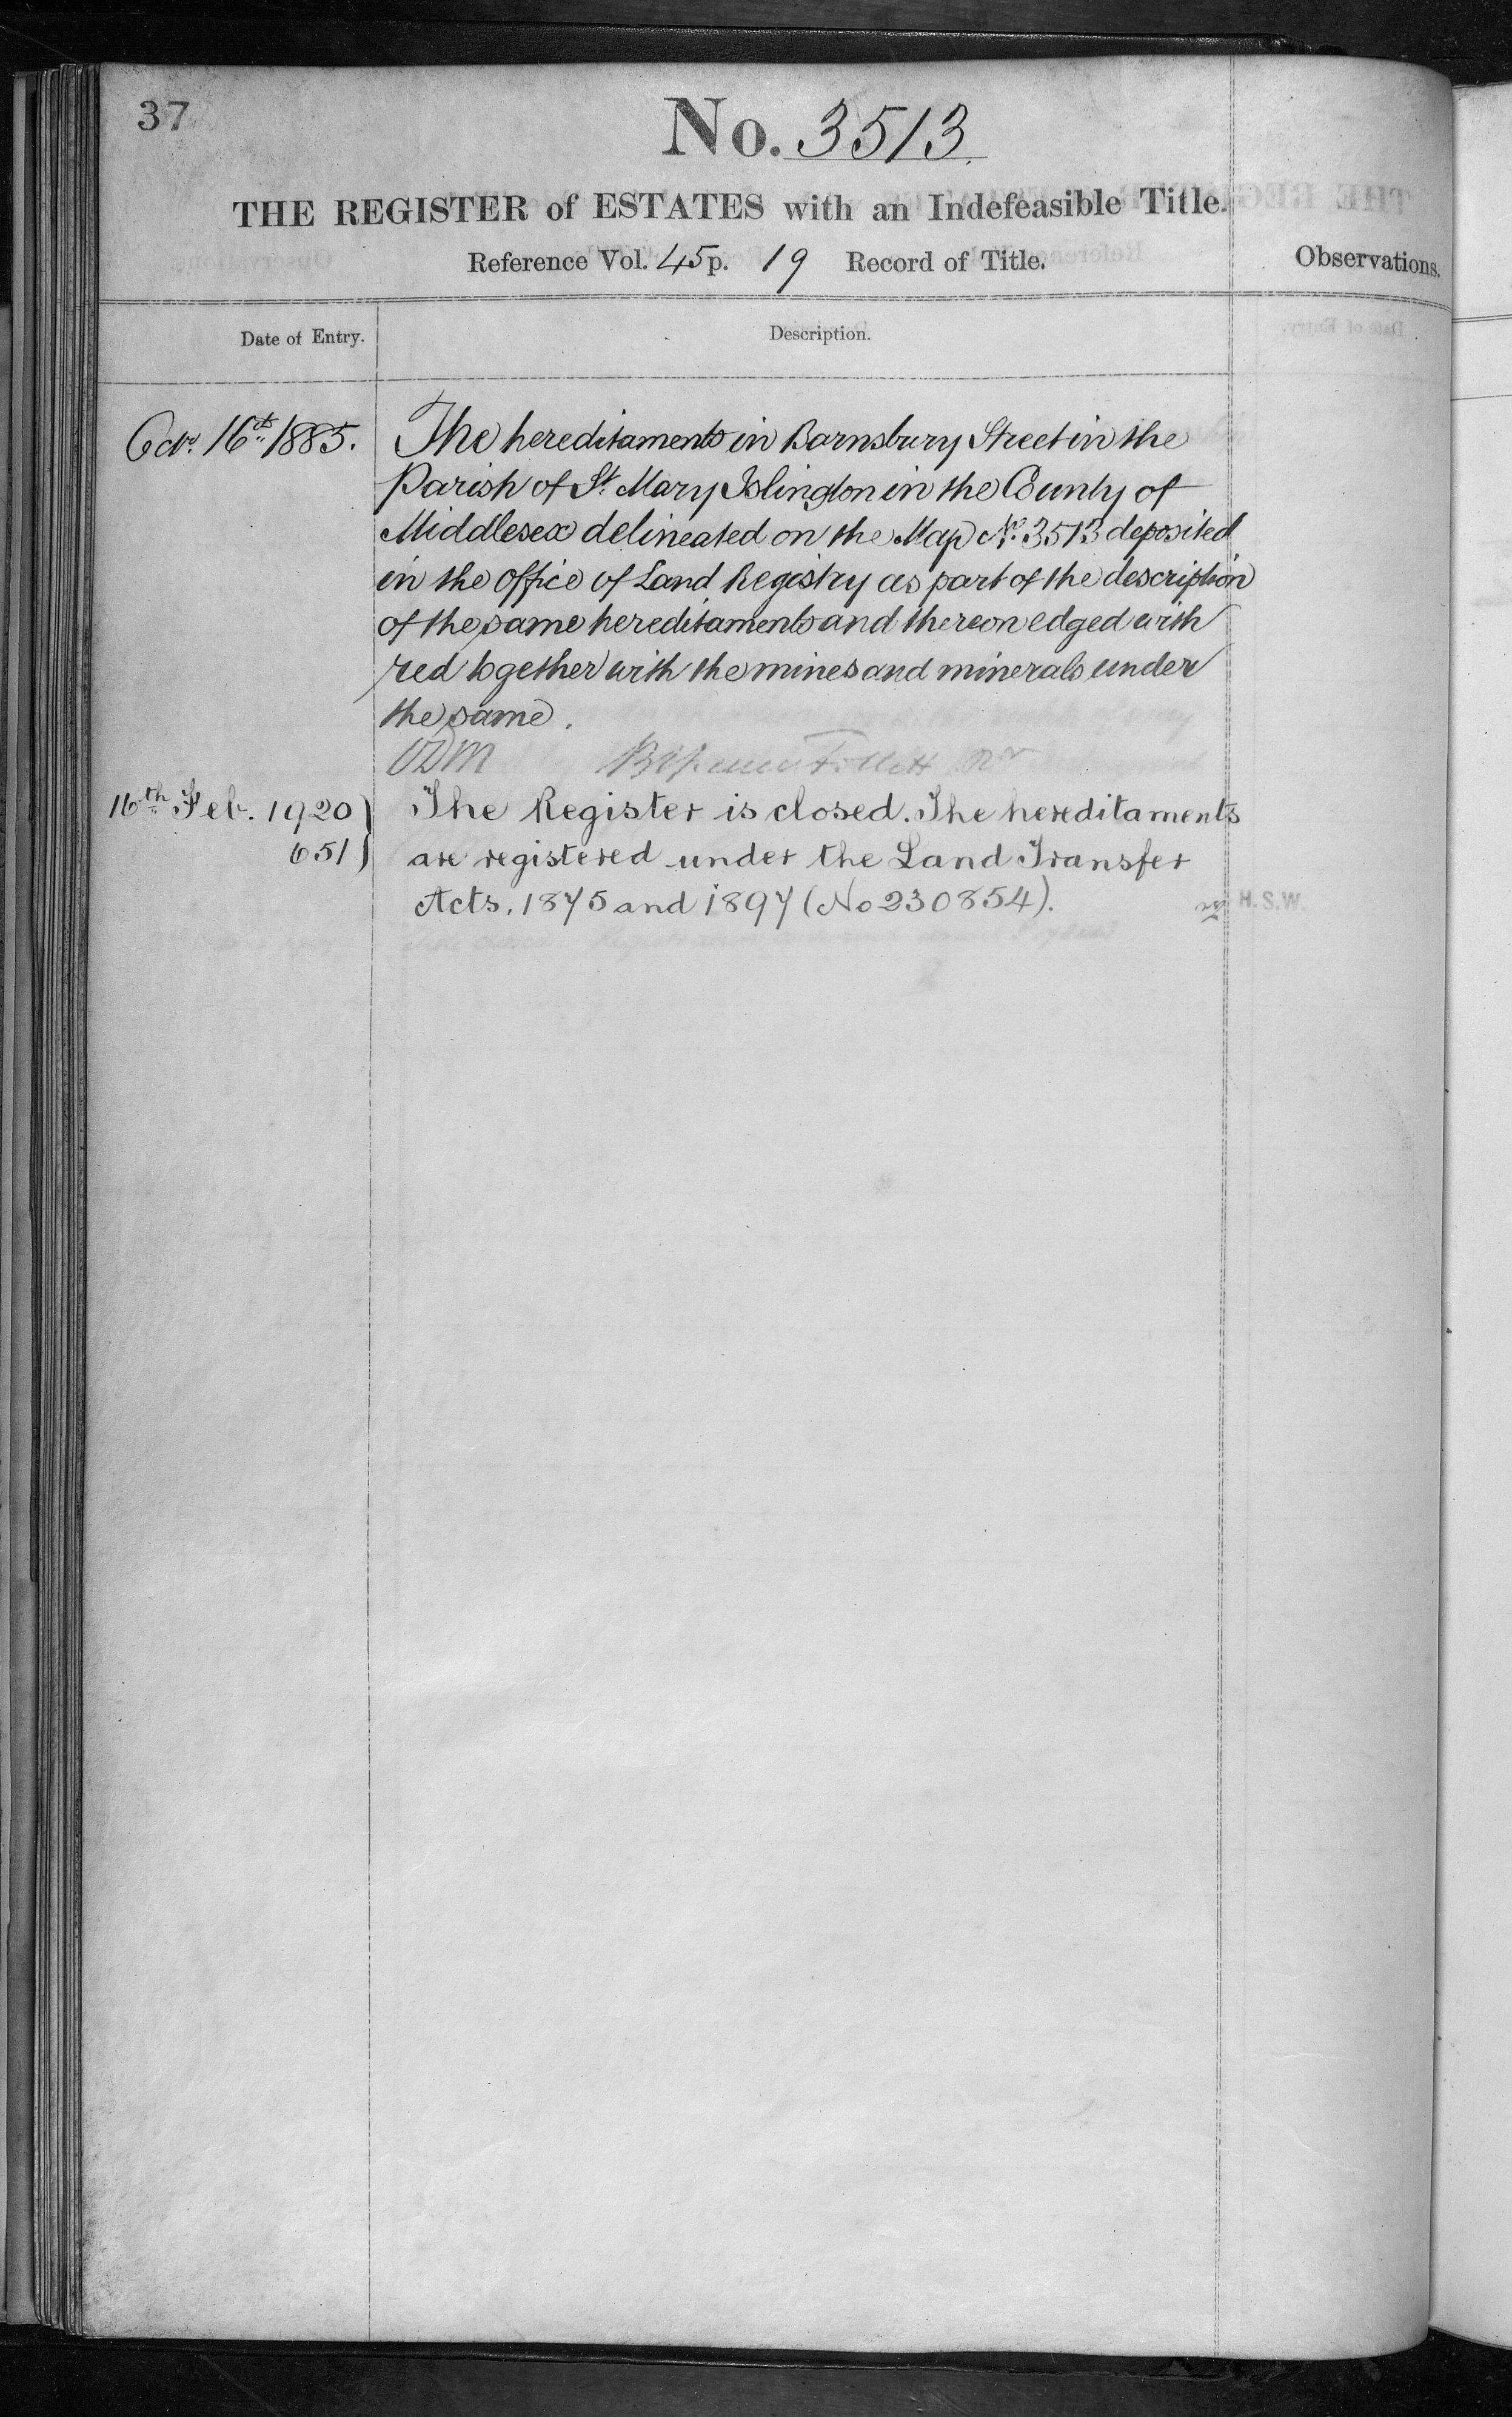 37
No. 3513.
THE REGISTER of ESTATES with an Indefeasible Title.
Reference Vol. 45 p. 19 Record of Title.
Observations.
Date of Entry.
Description.
Octr. 16th 1885.
The hereditaments in Barnsbury Street in the
Parish of St. Mary Islington in the County of
Middlesex delineated on the Map No. 3513 deposited
in the Office of Land Registry as part of the description
of the same hereditaments and thereon edged with
red together with the mines and minerals under
the same.
16th Feb. 1920
651
The Register is closed. The hereditaments
are registered under the Land Transfer
Acts, 1875 and 1897 (No 230854).
H.S.W.